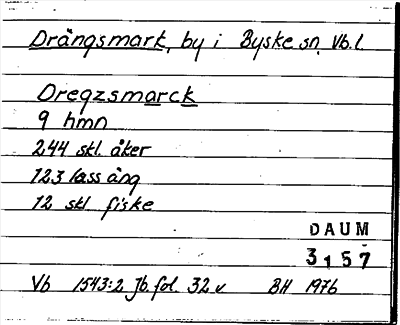 Drängsmark, by i Byske sn, Vb.l.
Dregzsmarck
9 hmn
244 skl. åker
123 lass äng
12 skl fiske
DAUM
3157
Vb 1543:2 Jb. fol. 32 v BH 1976